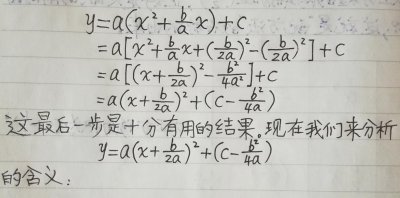 y=a(x²+b/a x)+c
=a[x²+b/a x+(b/2a)²-(b/2a)²]+c
=a[(x+b/2a)²-b²/4a²]+c
=a(x+b/2a)²+(c-b²/4a)
这最后一步是十分有用的结果。现在我们来分析
y=a(x+b/2a)²+(c-b²/4a)
的含义：